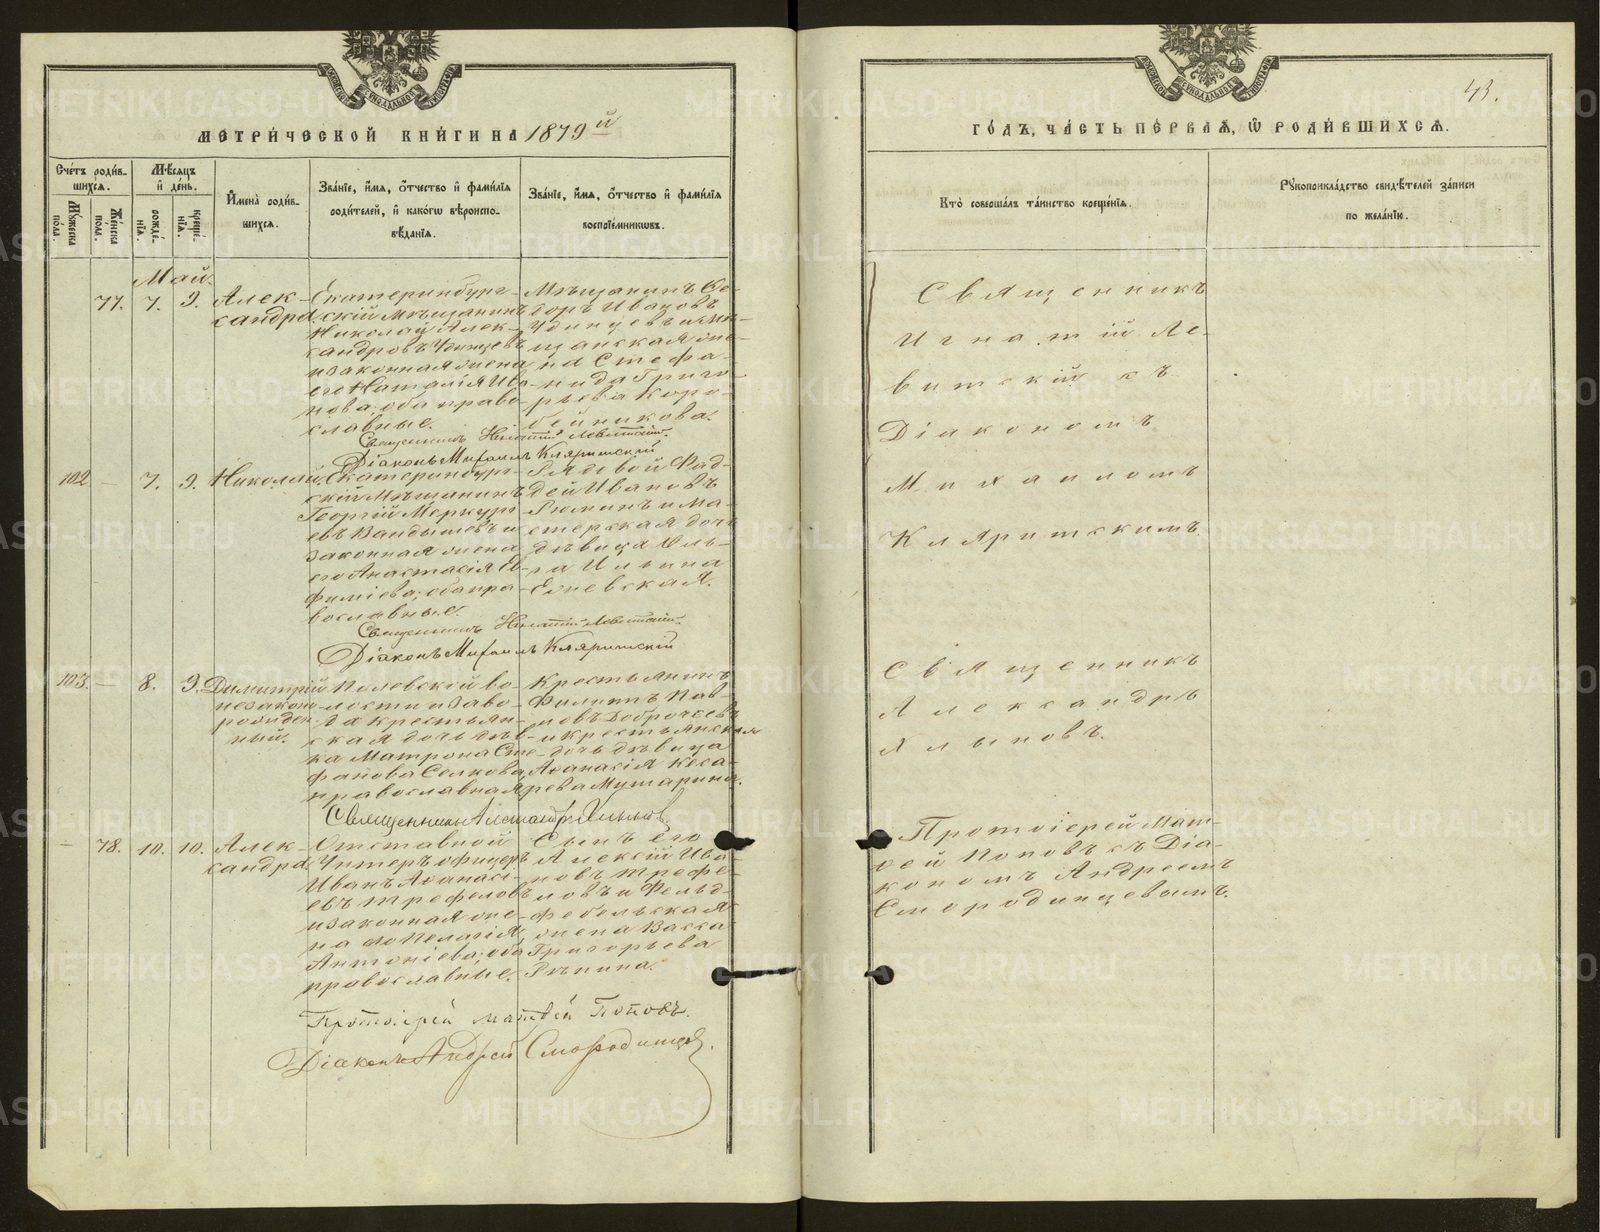 МЕТРИ́ЧЕСКОЙ КНИ́ГИ НА 1879 й
Сче́тъ роди́в-
шихсѧ.
Мѣ́сѧцъ
и҆ де́нь.
И҆мена̀ роди́в-
шихсѧ.
Зва́нїе, и҆́мѧ, ѻ҆́тчество и҆ фами́лїѧ
роди́телей, и҆ како́гѡ вѣроиспо-
вѣ́данїѧ.
Зва́нїе, и҆́мѧ, ѻ҆́тчество и҆ фами́лїѧ
воспрїе́мникѡвъ.
Мꙋ́жеска
по́ла.
Же́нска
по́ла.
рожде́-
нїѧ.
креще́-
нїѧ.
Май.
77. 7. 9. Алек-
сандра.
Екатеринбург-
скій Мѣщанинъ
Николай Алек-
сандровъ Удинцевъ
и законная жена
его Наталія Ива-
нова; оба право-
славные.
Мѣщанинъ Ѳе-
доръ Ивановъ
Удинцевъ и Мѣ-
щанская же-
на Стефа-
нида Григо-
рьева Коро-
бейникова.
Священникъ Игнатій Левитскій.
Діаконъ Михаилъ Кляритскій
102 — 7. 9. Николай
Екатеринбург-
скій Мѣщанинъ
Георгій Меркурі-
евъ Вандышевъ и
законная жена
его Анастасія Ев-
фиміева; оба пра-
вославные.
Рядовой Фад-
дей Ивановъ
Рюминъ и Ма-
стерская дочь
дѣвица Оль-
га Ильина
Священникъ Игнатій Левитскій.
Діаконъ Михаилъ Кляритскій
103. — 8. 9. Димитрій
незаконо-
рожден-
ный.
Полевской во-
лости и заво-
да крестьян-
ская дочь дѣв-
ка Матрона Сте-
фанова
православная.
Крестьянинъ
Филиппъ Пав-
ловъ
и крестьянская
дочь дѣвица
Аѳанасія Кеса-
рева
Священникъ Александръ Хлыновъ
— 78. 10. 10. Алек-
сандра
Отставной
Унтеръ офицеръ
Иванъ Аѳанасі-
евъ Трефеловъ
и законная же-
на его Пелагія
Антоніева; оба
православные.
Сынъ его
Алексій Ива-
новъ Трефе-
ловъ и Фельд-
фебельская
жена Васса
Григорьева
Рѣпина.
Протоіерей Матѳей Поповъ.
Діаконъ Андрей Смородинцевъ.
43.
ГО́ДЪ, ЧА́СТЬ ПЕ́РВАѦ, Ѡ҆ РОДИ́ВШИХСѦ.
Кто̀ соверша́лъ та́инство креще́нїѧ.
Рꙋкоприкла́дство свидѣ́телей за́писи
по жела́нїю.
Священникъ
Игнатій Ле-
витскій съ
Діакономъ
Михаиломъ
Кляритскимъ.
Священникъ
Александръ
Хлыновъ.
Протоіерей Мат-
ѳей Поповъ съ Діа-
кономъ Андреемъ
Смородинцевымъ.
METRIKI.GASO-URAL.RU